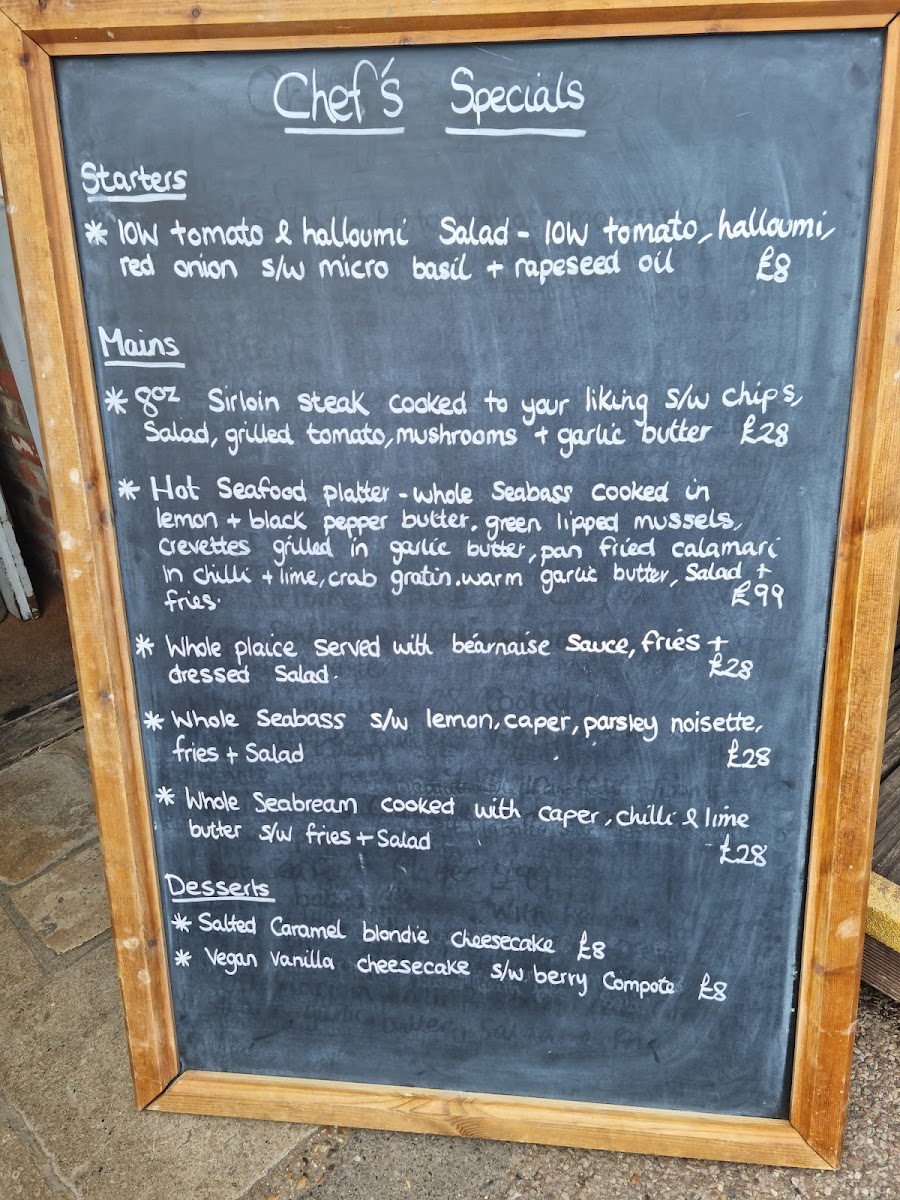 Chef's Specials
Starters
* IOW tomato & halloumi Salad - IOW tomato, halloumi,
red onion s/w micro basil + rapeseed oil £8
Mains
* 8oz Sirloin steak cooked to your liking s/w chips,
Salad, grilled tomato, mushrooms + garlic butter £28
* Hot Seafood platter - whole Seabass cooked in
lemon + black pepper butter, green lipped mussels,
crevettes grilled in garlic butter, pan fried calamari
in chilli + lime, crab gratin, warm garlic butter, Salad +
fries. £99
* Whole plaice served with béarnaise sauce, fries +
dressed Salad. £28
* Whole Seabass s/w lemon, caper, parsley noisette,
fries + Salad £28
* Whole Seabream cooked with caper, chilli & lime
butter s/w fries + Salad £28
Desserts
* Salted Caramel blondie cheesecake £8
* Vegan Vanilla cheesecake s/w berry Compote £8